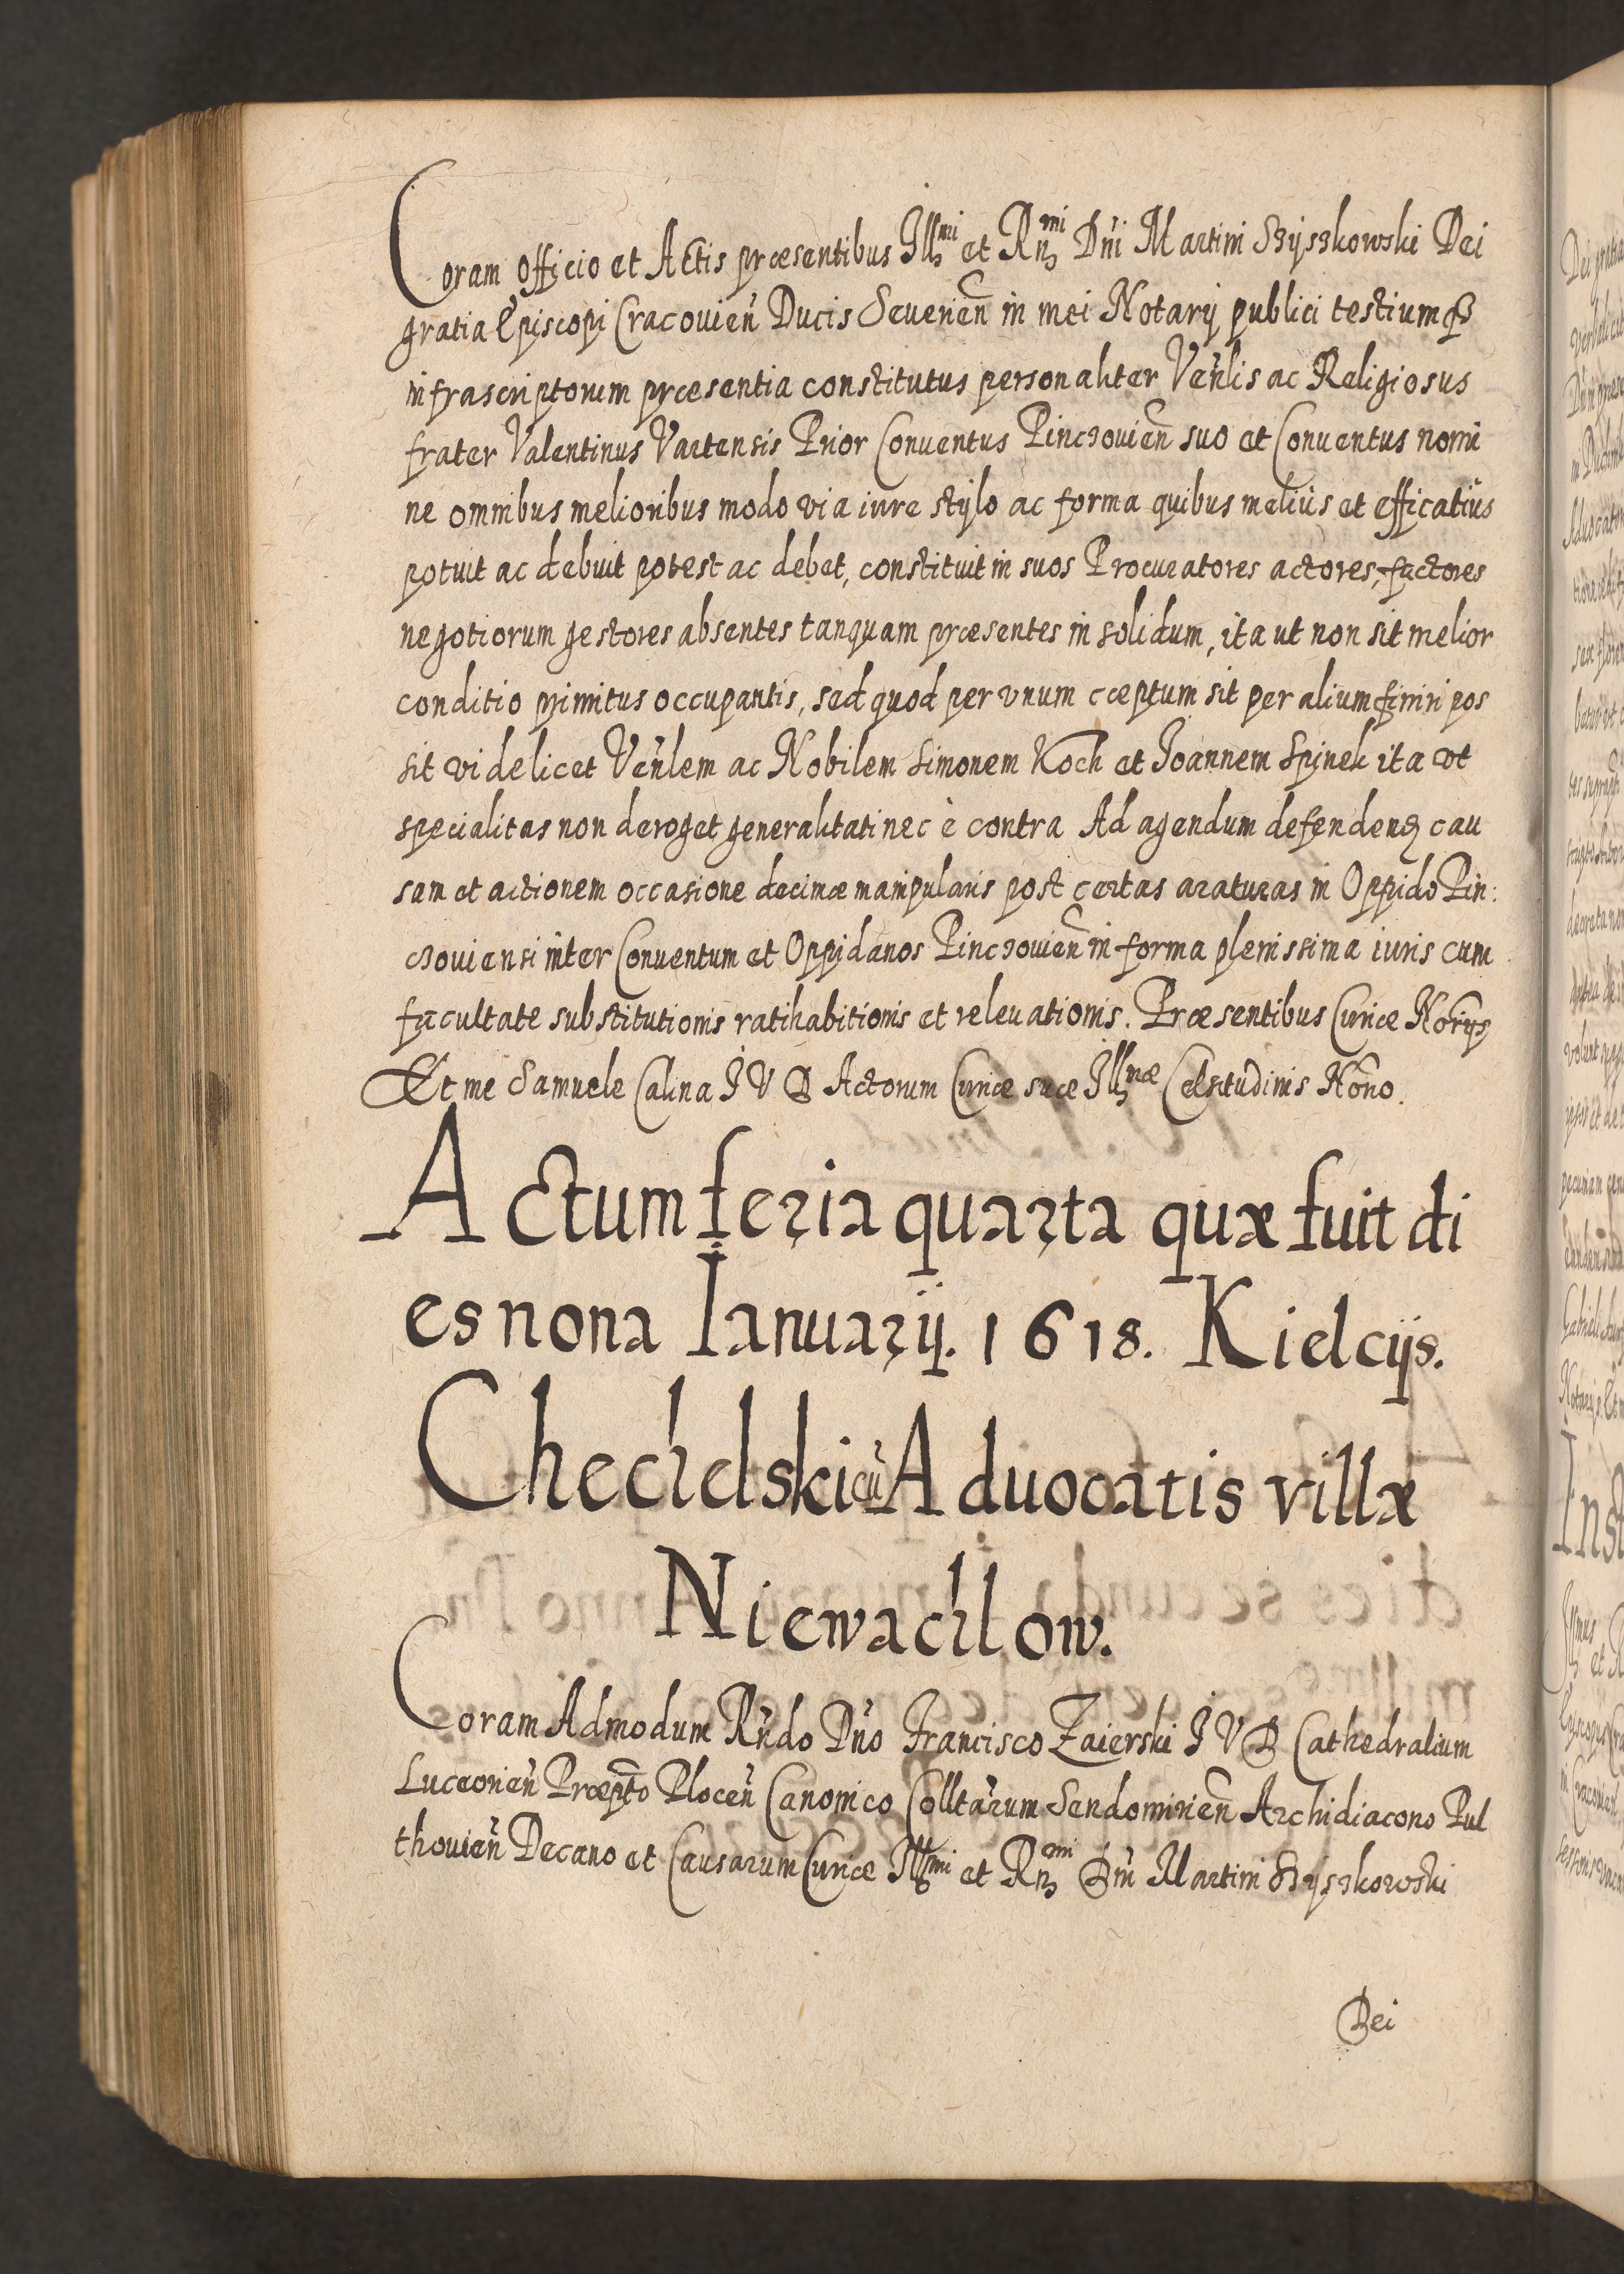 Coram officio et Actis præsentibus Illmi et Rmi Dñi Martini Szyszkowski Dei
gratia Episcopi Cracovień Ducis Severień in mei Notarij publici testiumq3
infrascriptorum præsentia constitutus personaliter Veñlis ac Religiosus
frater Valentinus Vartensis Prior Conventus Pinczovień suo et Conventus nomi
ne omnibus melioribus modo via iure stylo ac forma quibus meliùs et efficatiùs
potuit ac debuit potest ac debet, constituit in suos Procuratores actores, factores
negotiorum gestores absentes tanquam præsentes in solidum, ita ut non sit melior
conditio primitus occupantis, sed quod per vnum cœptum sit per alium finiri pos
sit videlicet Veñlem ac Nobilem Simonem Koch et Joannem Spinek ita vt
specialitas non deroget generalitati nec è contra Ad agendum defendenq cau
sam et actionem occasione decimæ manipularis post certas araturas in Oppido Pin:
czoviensi inter Conventum et Oppidanos Pinczovień in forma plenissima iuris cum
facultate substitutionis ratihabitionis et relevationis. Præsentibus Curiæ Norijs
Et me Samuele Calina J V D Actorum Curiæ suæ Illmæ Celsitudinis Nono.
Actum feria quarta quæ fuit di
es nona Ianuarij. 1618. Kielcijs.
Chechelski cũ Aduocatis villæ
Niewachlow.
Coram Admodum Rñdo Dño Francisco Zaierski J V D Cathedralium
Luceorień Præpto Ploceń Canonico Colltarum Sendomirień Archidiacono Pul
thovień Decano et Causarum Curiæ Illmi et Rmi Dñi Martini Szyszkowski
Dei